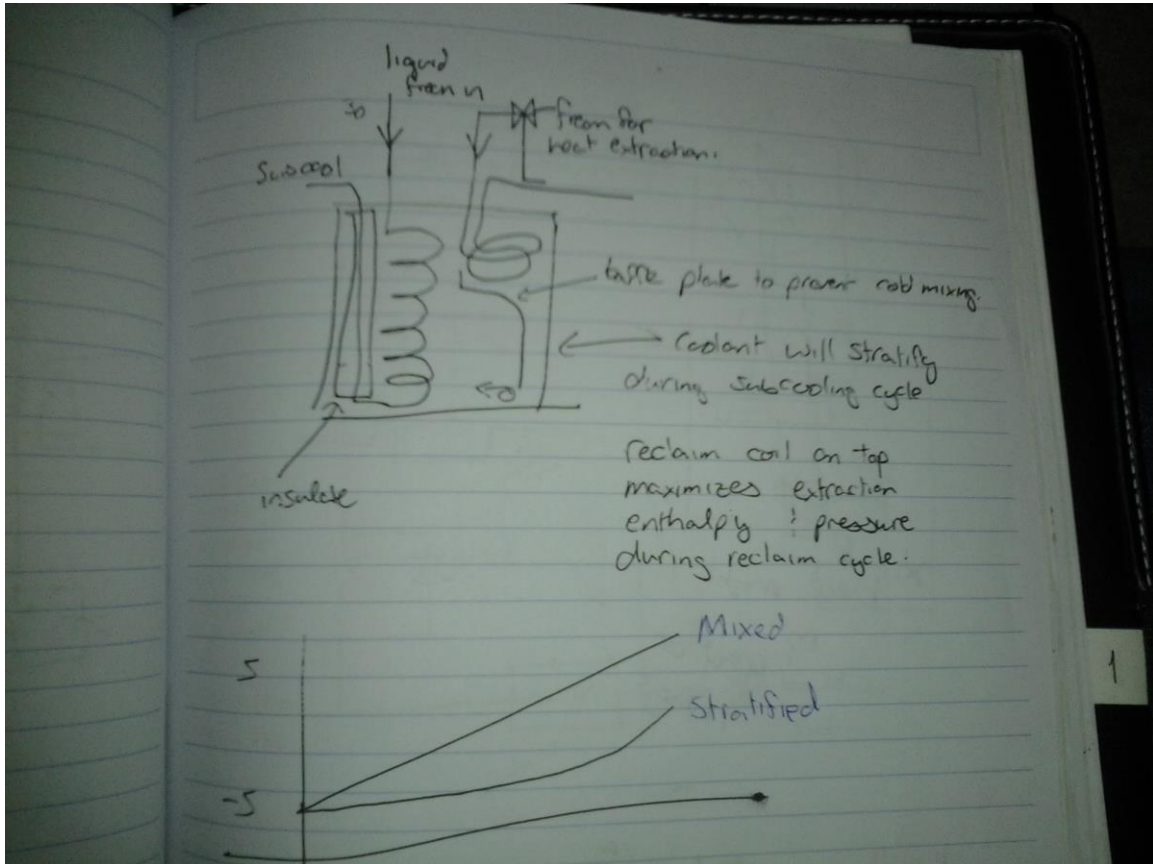 liquid
freon in
freon for
heat extraction.
Subcool
plate to prevent cold mixing.
Coolant will stratify
during subcooling cycle
insulate
reclaim coil on top
maximizes extraction
enthalpy & pressure
during reclaim cycle.
Mixed
5
Stratified
-5
1